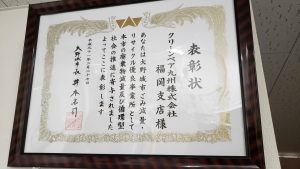 表彰状
クリーンベア九州株式会社
福岡支店様
あなたは大野城市ごみ減量・
リサイクル優良事業所として
本市の廃棄物減量及び循環型
社会の推進に寄与されました
よってここに表彰します
大野城市長 井本宗司